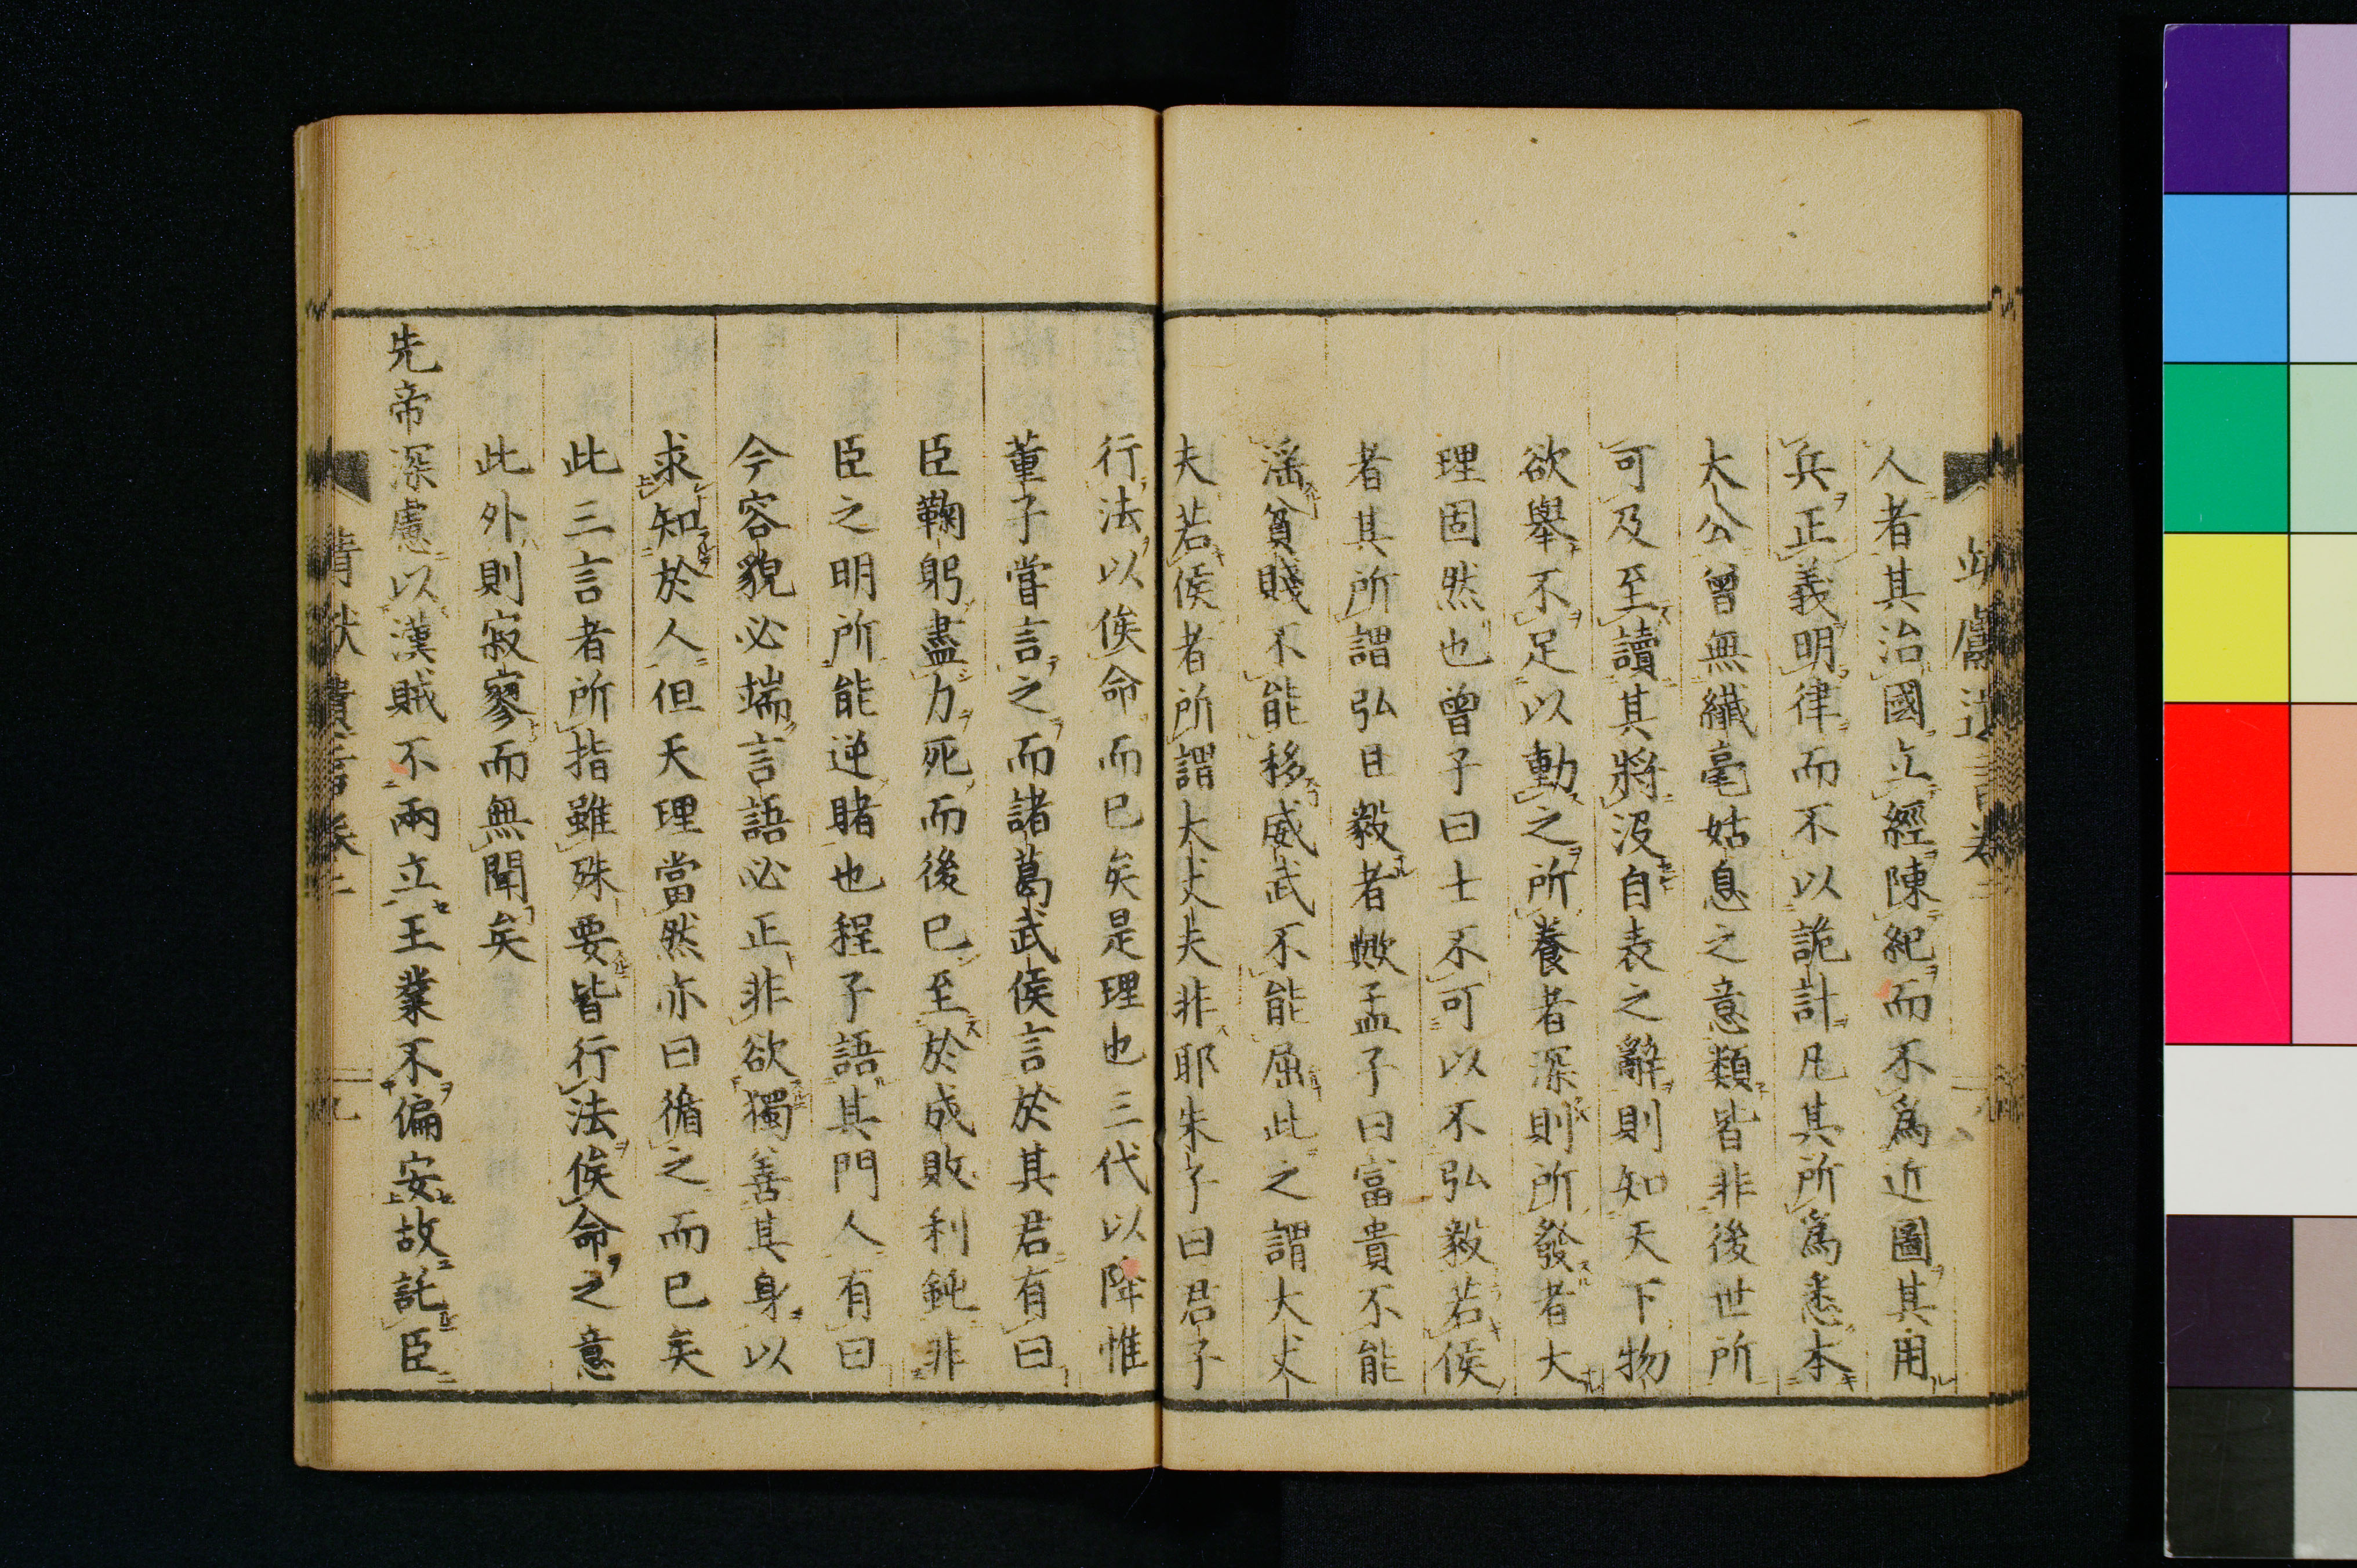 人者其治國立經陳紀而不爲近圖其用
兵正義明律而不以詭計凡其所爲悉本
大公曾無纎毫姑息之意類皆非後世所
可及至讀其將沒自表之辭則知天下物
欲舉不足以動之所養者深則所發者大
理固然也曾子曰士不可以不弘毅若侯
者其所謂弘且毅者歟孟子曰富貴不能
滛貧賤不能移威武不能屈此之謂大丈
夫若侯者所謂大丈夫非耶朱子曰君子
行法以俟命而已矣是理也三代以降惟
董子嘗言之而諸葛武侯言於其君有曰
臣鞠躬盡力死而後已至於成敗利鈍非
臣之明所能逆睹也程子語其門人有曰
今容貌必端言語必正非欲獨善其身以
求知於人但天理當然亦曰循之而已矣
此三言者所指雖殊要皆行法俟命之意
此外則寂寥而無聞矣
先帝深慮以漢賊不兩立王業不偏安故託臣